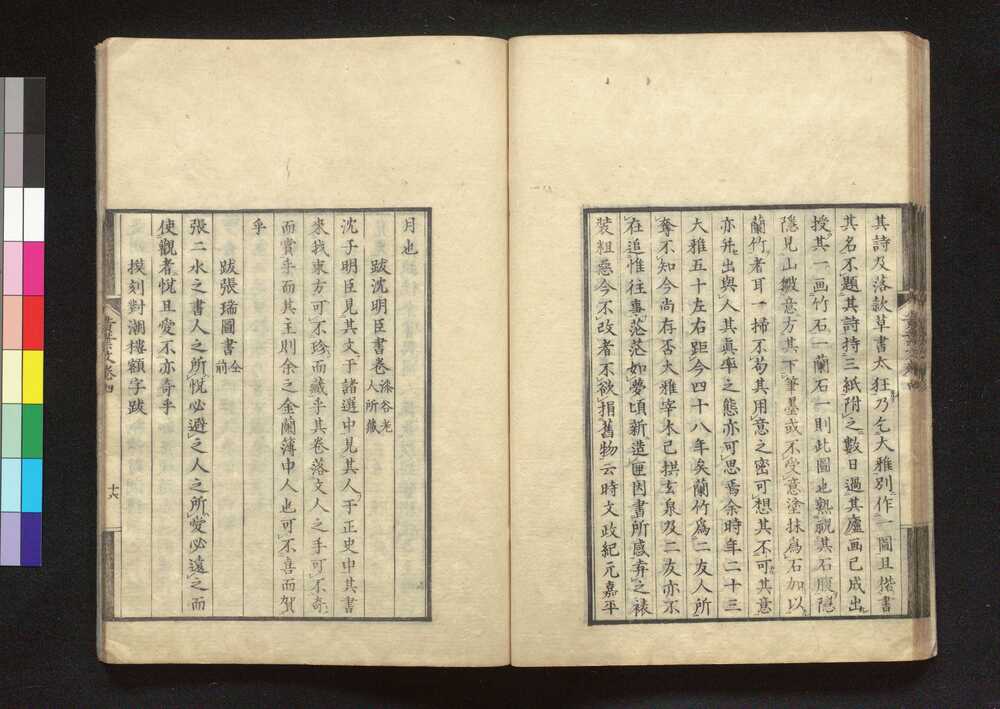 其詩及落款草書太狂乃乞大雅別作一圖且楷書
其名不題其詩持三紙附之數日過其廬画已成出
授其一画竹石一蘭石一則此圖也熟視其石腹隱
隱見山皴意方其下筆墨或不受意塗抹為石加以
蘭竹者耳一掃不苟其用意之密可想其不可其意
亦并出與人其真率之態亦可思焉余時年二十三
大雅五十左右距今四十八年矣蘭竹為二友人所
奪不知今尚存否大雅宰木已拱玄泉及二友亦不
在追惟往事茫茫如夢頃新造匣因書所感弃之裱
裝粗惡今不改者不欲損舊物云時文政紀元嘉平
月也
跋沈明臣書卷 添谷老人所藏
沈子明臣見其文于諸選中見其人于正史中其書
來我東方可不珍而藏乎其卷落文人之手可不奇
而賞乎而其主則余之金蘭簿中人也可不喜而賀
乎
跋張瑞圖書 仝前
張二水之書人之所悅必避之人之所愛必遠之而
使觀者悅且愛不亦奇乎
摸刻對潮樓額字跋
黃葉夕卷四
十六